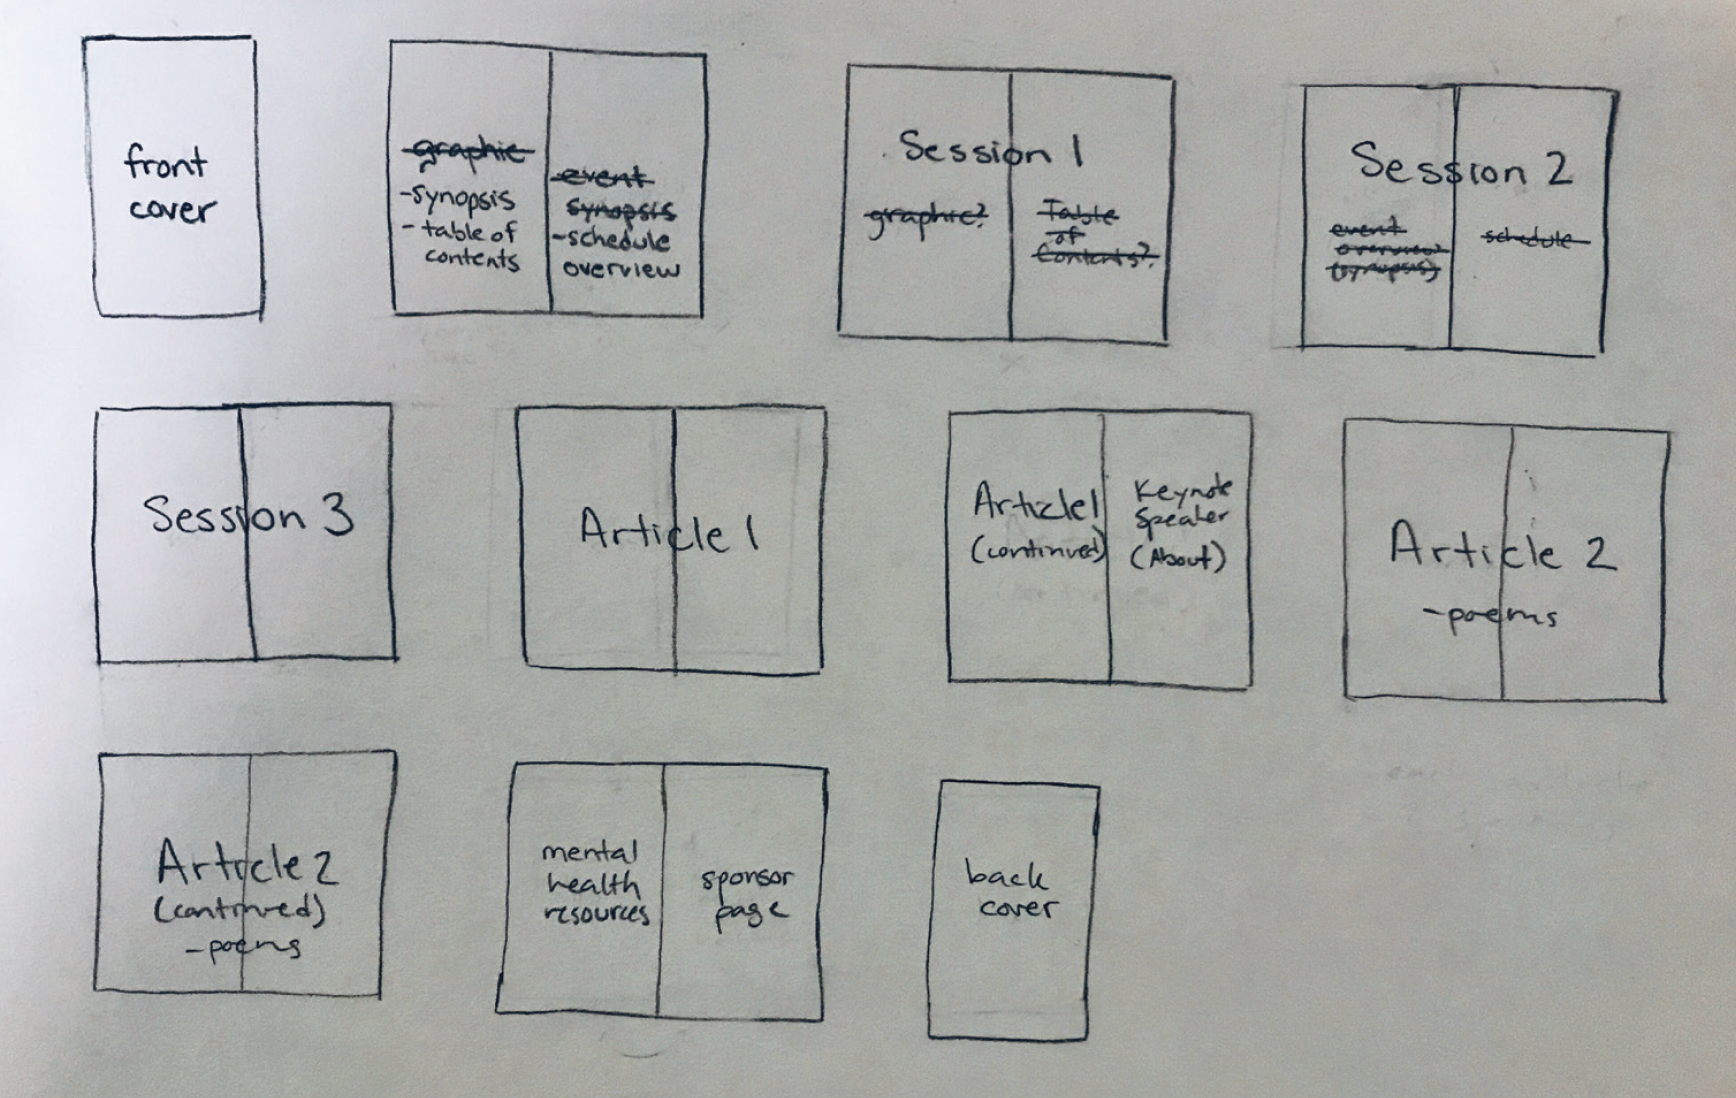 front
cover
graphic
-synopsis
- table of
contents
event
synopsis
-schedule
overview
Session 1
graphic?
Table
of
Contents?
Session 2
event
overview?
(synopsis)
schedule
Session 3
Article 1
Article 1
(continued)
Keynote
Speaker
(About)
Article 2
-poems
Article 2
(continued)
-poems
mental
health
resources
sponsor
page
back
cover